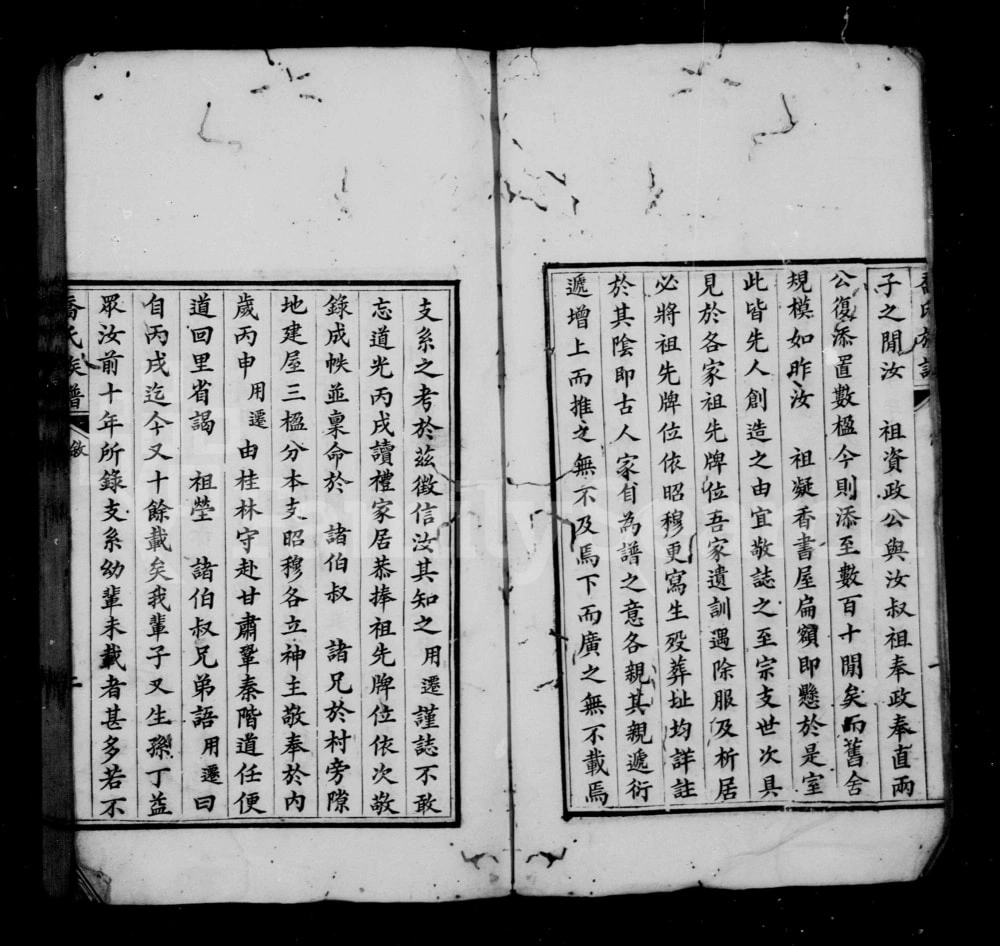 喬氏族譜
子之閒汝　祖資政公與汝叔祖奉政奉直兩
公復添置數楹今則添至數百十閒矣而舊舍
規模如昨汝　祖凝香書屋扁額即懸於是室
此皆先人創造之由宜敬誌之至宗支世次具
見於各家祖先牌位吾家遺訓遇除服及析居
必將祖先牌位依昭穆更寫生歿葬址均詳註
於其陰即古人家自為譜之意各親其親遞衍
遞增上而推之無不及焉下而廣之無不載焉
支系之考於茲徵信汝其知之用遷謹誌不敢
忘道光丙戌讀禮家居恭捧祖先牌位依次敬
錄成帙並稟命於　諸伯叔　諸兄於村旁隙
地建屋三楹分本支昭穆各立神主敬奉於內
歲丙申用遷由桂林守赴甘肅鞏秦階道任便
道回里省謁　祖塋　諸伯叔兄弟語用遷曰
自丙戌迄今又十餘載矣我輩子又生孫丁益
眾汝前十年所錄支系幼輩未載者甚多若不
喬氏族譜
敘
二